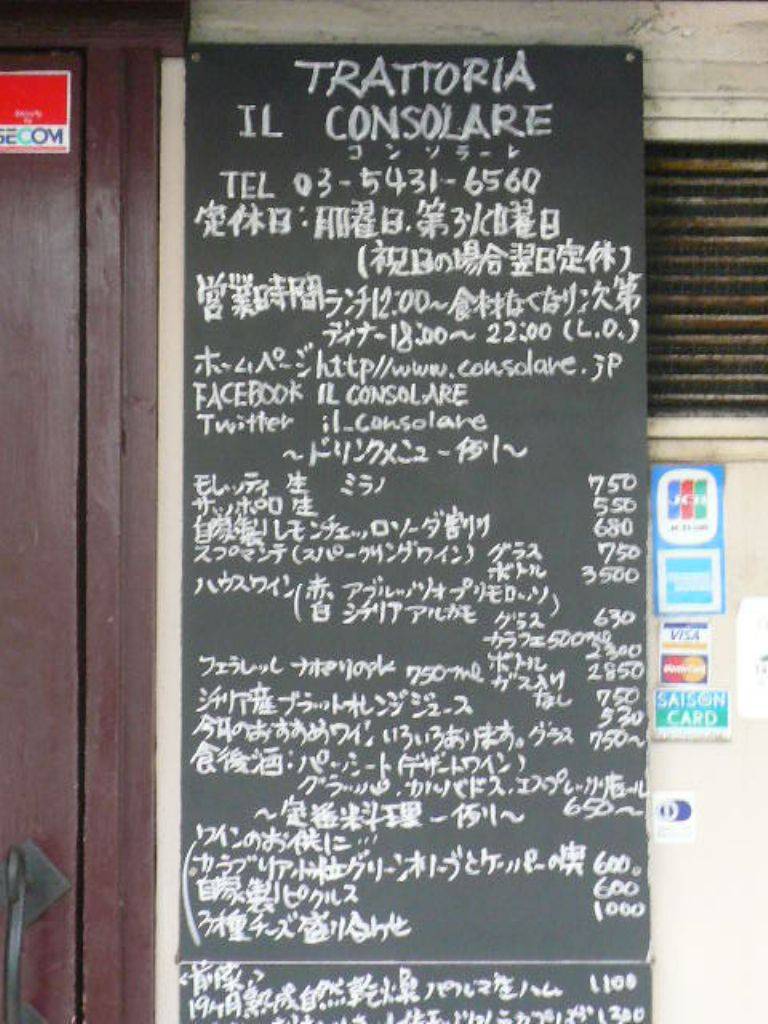 SECOM
TRATTORIA
IL CONSOLARE
コンソラーレ
TEL 03-5431-6560
定休日:月曜日.第3火曜日
(祝日の場合翌日定休)
営業時間 ランチ12:00〜食材なくなり次第
ディナー18:00〜22:00(L.O.)
ホームページ http//www.consolare.jp
FACEBOOK IL CONSOLARE
Twitter il_consolare
〜ドリンクメニュー一例〜
モレッティ生 ミラノ 750
サッポロ生 550
自家製リモンチェッロソーダ割り 680
スプマンテ(スパークリングワイン) グラス 750
ボトル 3500
ハウスワイン(赤 アブルッツォ プリモロッソ)
白 シチリア アルカモ グラス 630
カラフェ500ml 2300
ボトル 2850
フェラレッレ ナポリの水 750ml ガス入り 750
なし
シチリア産ブラッドオレンジジュース 530
今月のおすすめワイン いろいろあります。グラス 750〜
食後酒:パッシート(デザートワイン)
グラッパ.カルバドス.エスプレッソリキュール
650〜
〜定番料理一例〜
ワインのお供に…
カラブリア 小粒グリーンオリーブとケッパーの実 600
自家製ピクルス 600
3種チーズ盛り合わせ 1000
<前菜>
19ヶ月熟成自然乾燥パルマ産生ハム 1100
1300
JCB
AMERICAN EXPRESS
VISA
MasterCard
SAISON
CARD